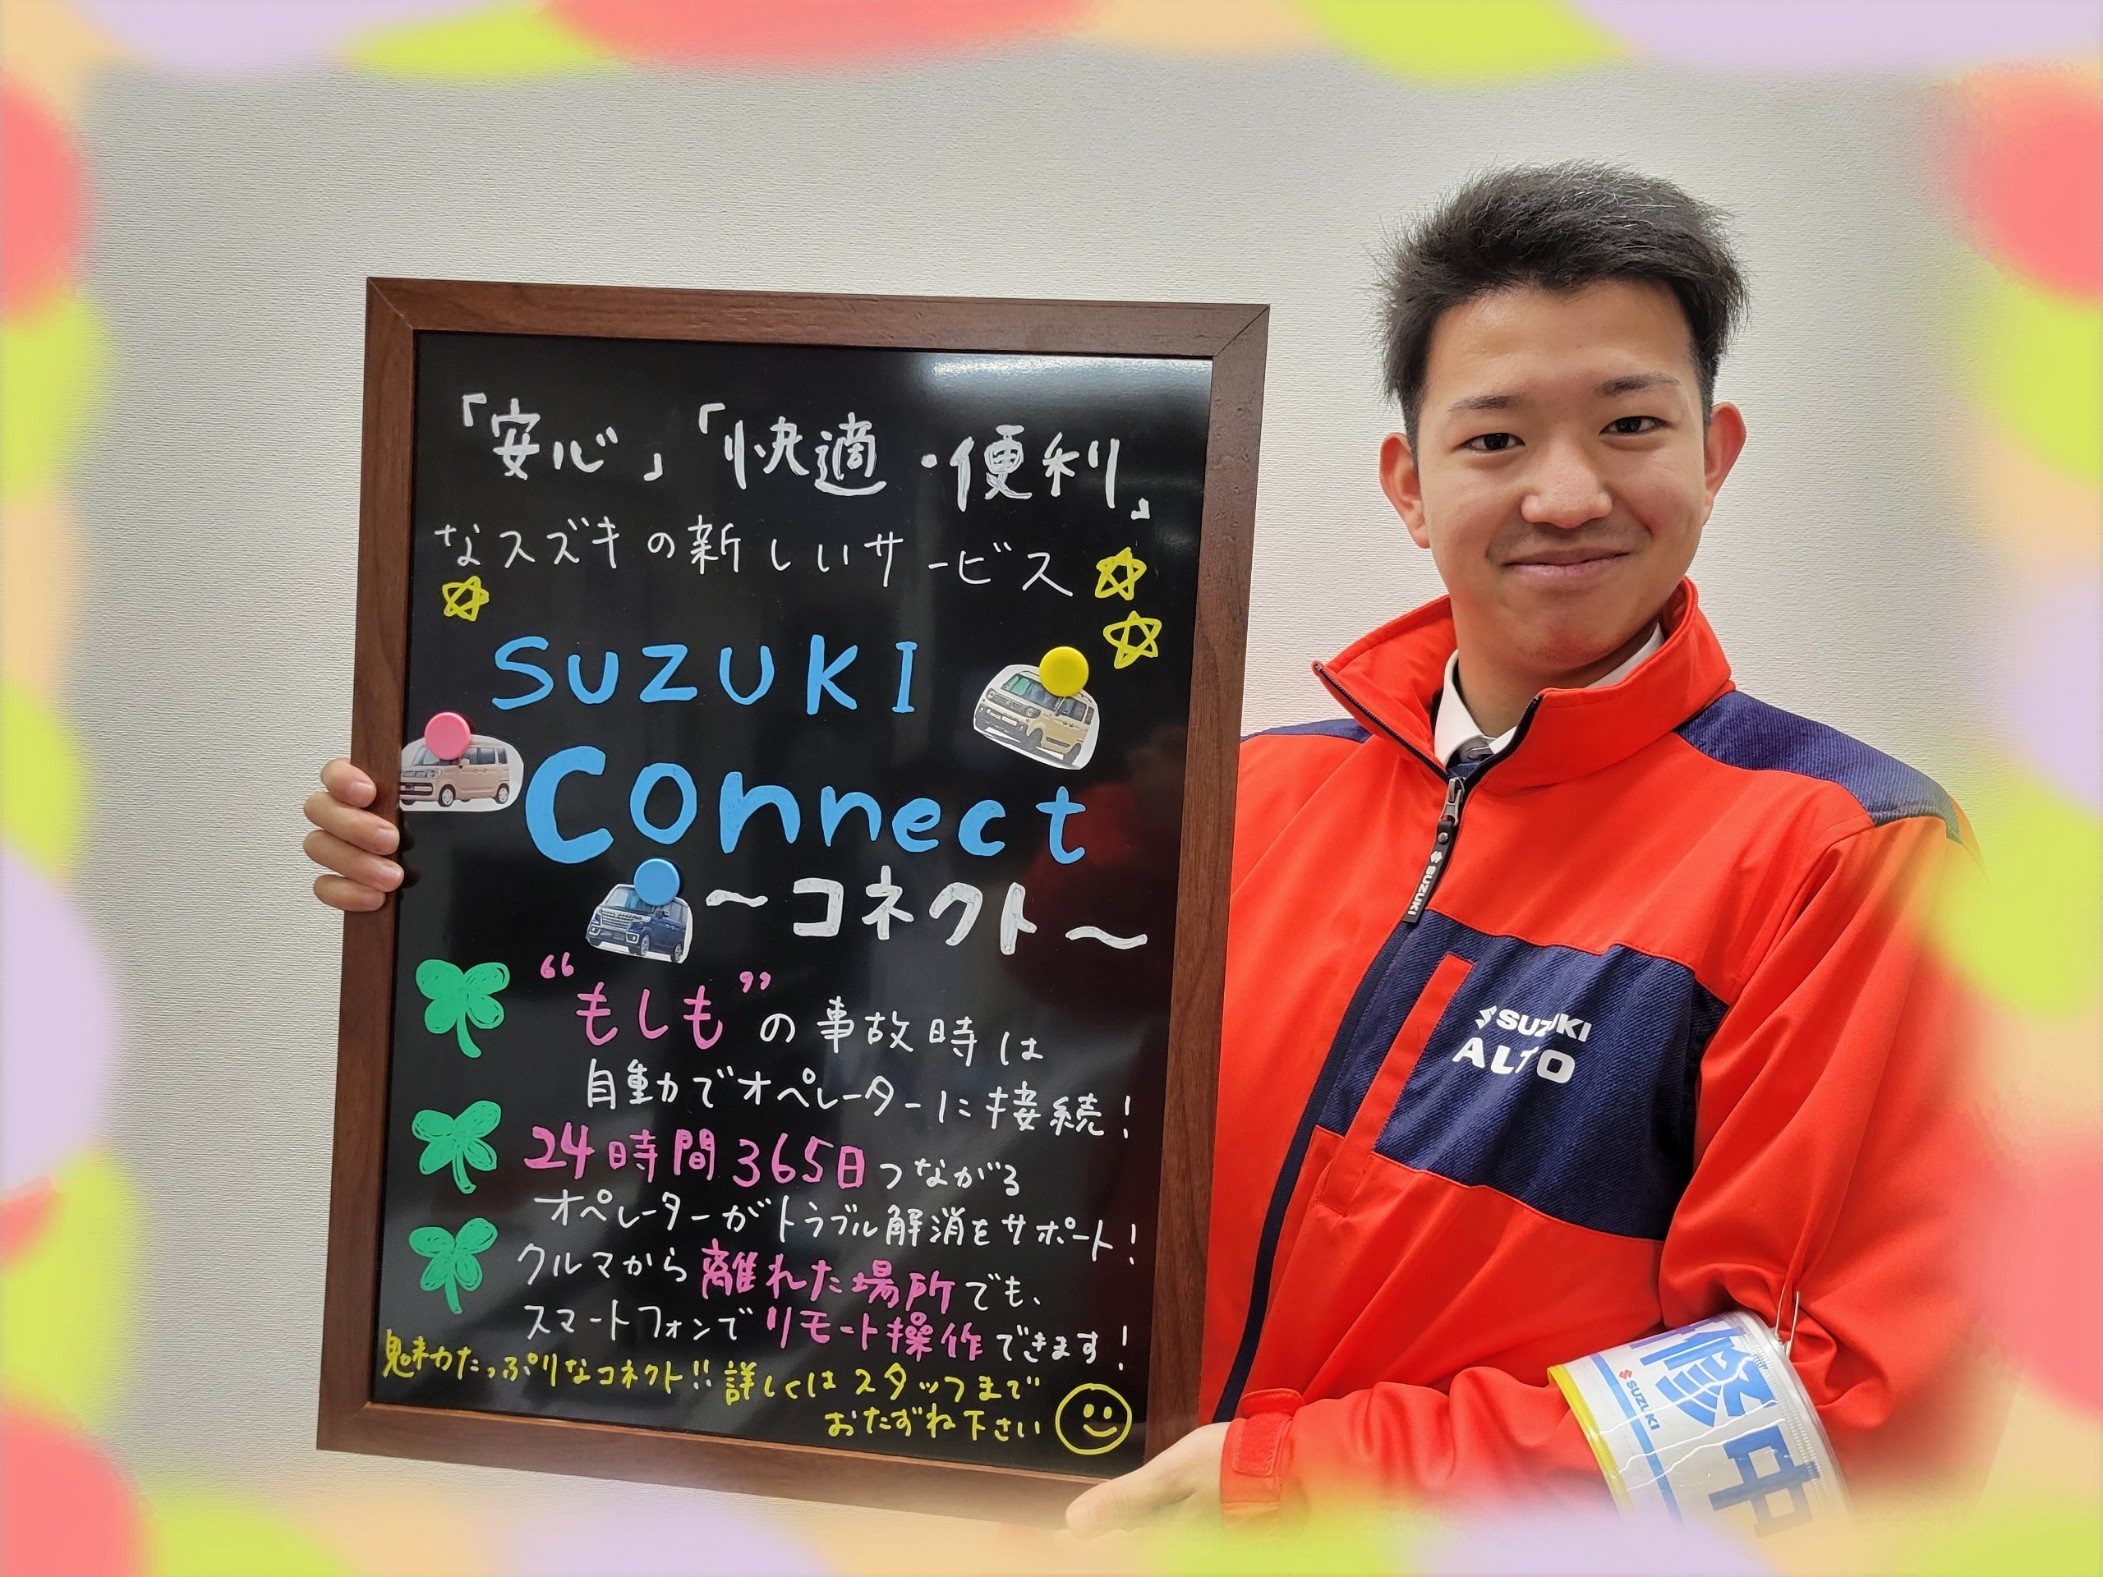 「安心」「快適・便利」
なスズキの新しいサービス
SUZUKI
Connect
～コネクト～
"もしも"の事故時は
自動でオペレーターに接続!
24時間365日つながる
オペレーターがトラブル解消をサポート!
クルマから離れた場所でも、
スマートフォンでリモート操作できます!
魅力たっぷりなコネクト!! 詳しくはスタッフまで
おたずね下さい
SUZUKI
SUZUKI
ALTO
修中
SUZUKI